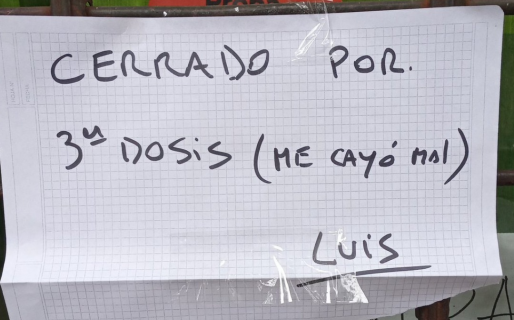 CERRADO POR.
3ª DOSiS (ME CAYÓ MAl)
LUiS